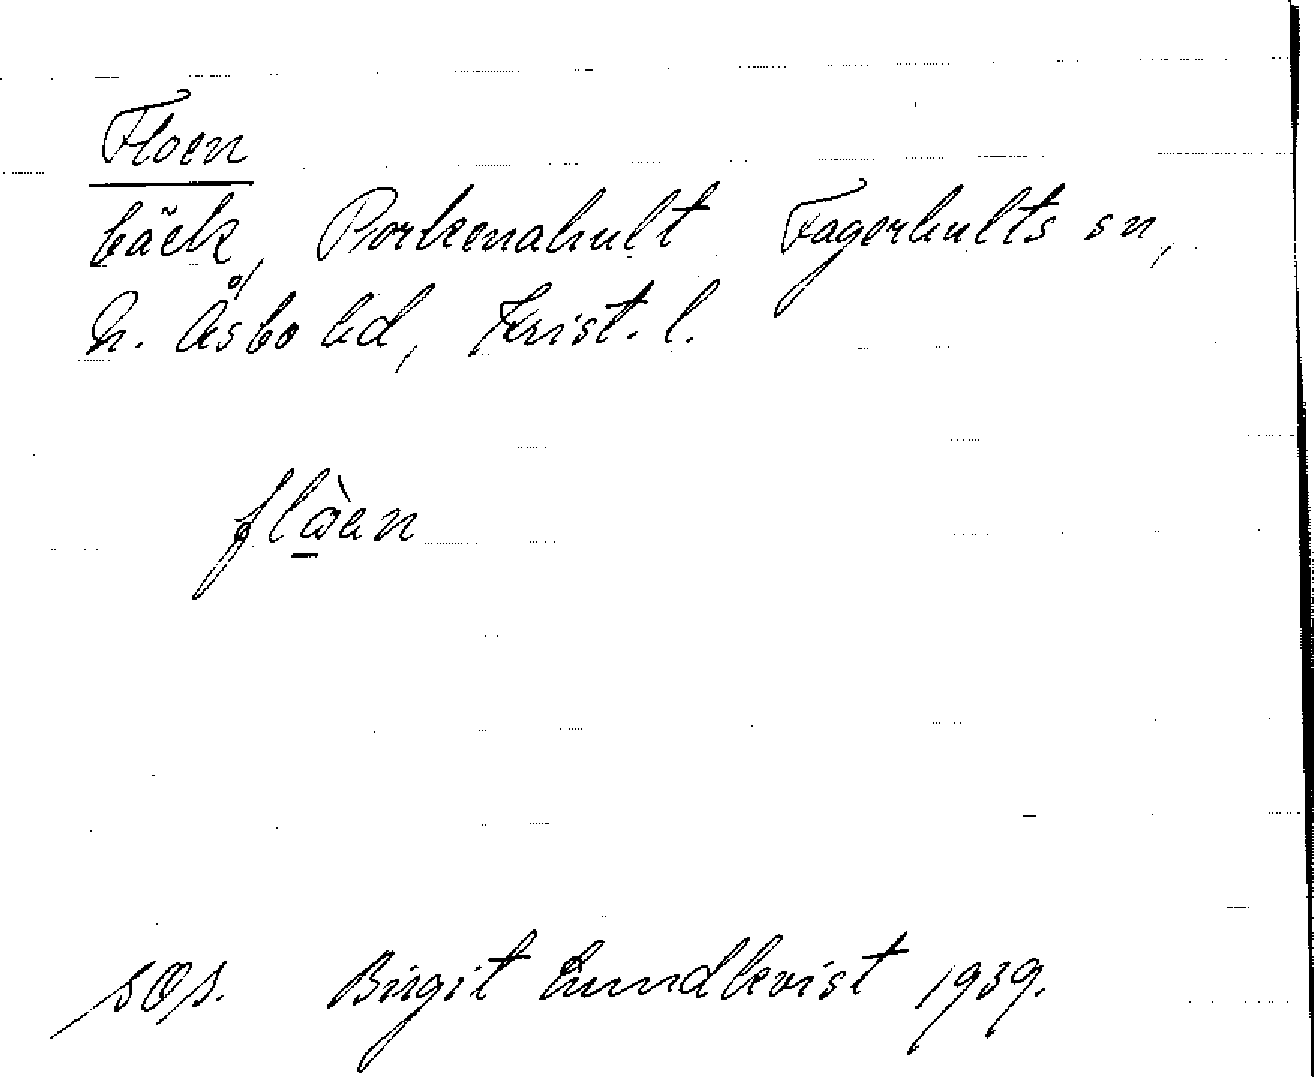 Floen
bäck, Porkenahult Fagerhults sn,
N. Åsbo hd, Krist. l.
flò̱en
Birgit Lundkvist 1939.